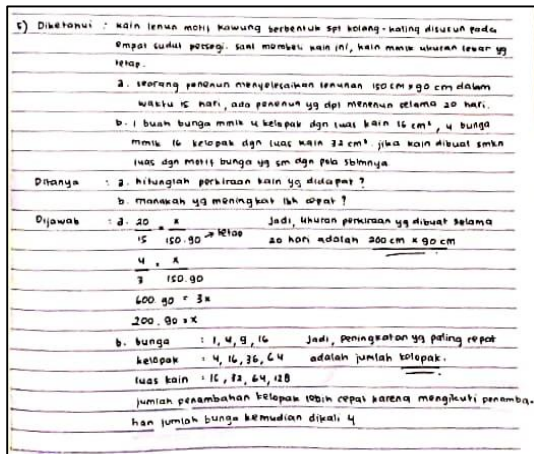 5) Diketahui : kain tenun motif kawung berbentuk spt kolang-kaling disusun pada
empat sudut persegi. saat membeli kain ini, kain mmlk ukuran lebar yg
tetap.
a. seorang penenun menyelesaikan tenunan 150 cm x 90 cm dalam
waktu 15 hari, ada penenun yg dpt menenun selama 20 hari.
b. 1 buah bunga mmlk 4 kelopak dgn luas kain 16 cm², 4 bunga
mmlk 16 kelopak dgn luas kain 32 cm². jika kain dibuat smkn
luas dgn motif bunga yg sm dgn pola sblmnya
Ditanya : a. hitunglah perkiraan kain yg didapat ?
b. manakah yg meningkat lbh cepat ?
Dijawab : a. 20/15 = x/150.90 → tetap Jadi, ukuran perkiraan yg dibuat selama
20 hari adalah 200 cm x 90 cm
4/3 = x/150.90
600.90 = 3x
200.90 = x
b. bunga : 1, 4, 9, 16 Jadi, peningkatan yg paling cepat
kelopak : 4, 16, 36, 64 adalah jumlah kelopak.
luas kain : 16, 32, 64, 128
jumlah penambahan kelopak lebih cepat karena mengikuti penamba-
han jumlah bunga kemudian dikali 4